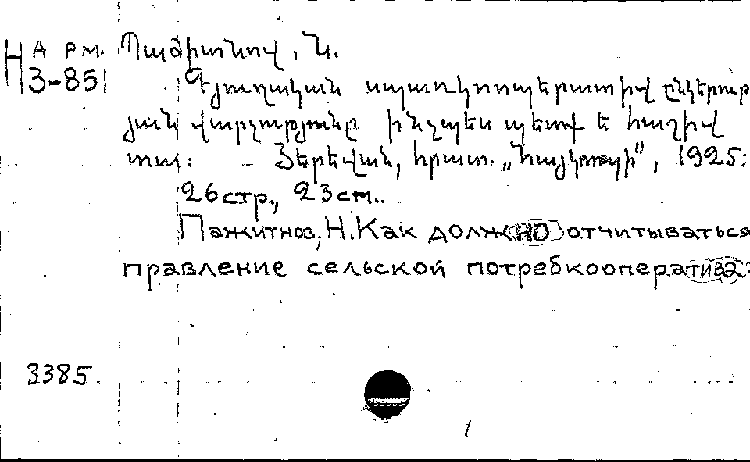 Н Арм.
3-85
Պաժիտնով, Ն.
Գյուղական սպառկոոպերատիվ ընկերութ
յան վարչությունը ինչպես պետք է հաշիվ
տա: – Յերեվան, հրատ. „Հայկոոպի", 1925:
26стр., 23см..
Пажитнов, Н. Как должно отчитываться
правление сельской потребкооператива.
3385.